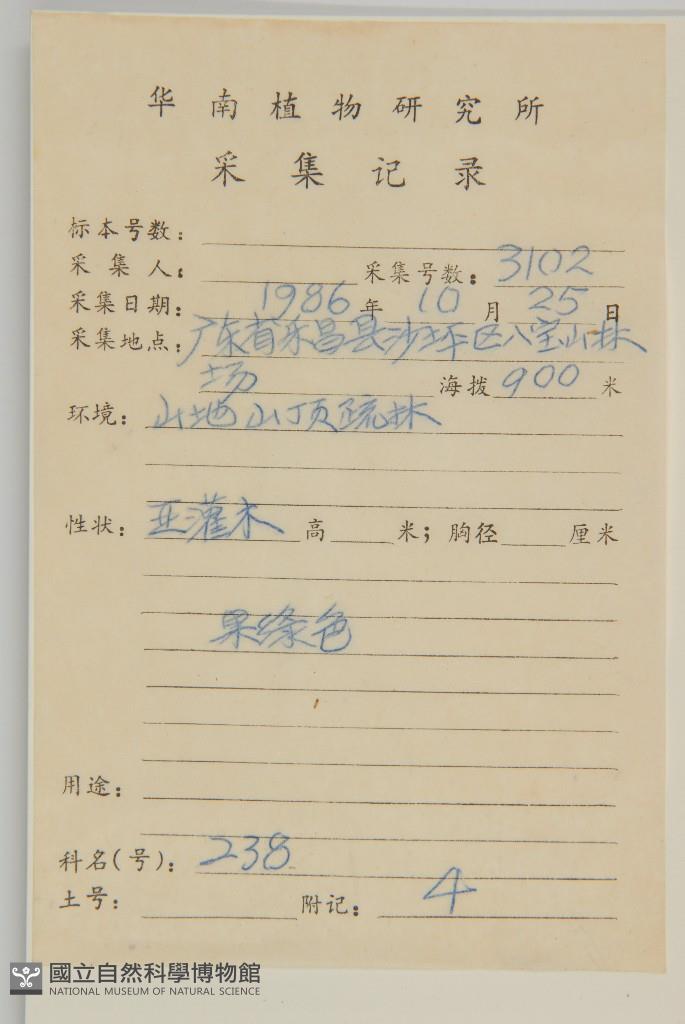 华南植物研究所
采集记录
标本号数：
采集人： 采集号数：3102
采集日期：1986年10月25日
采集地点：广东省乐昌县沙坪区八宝山林
场 海拨900米
环境：山地山顶疏林
性状：亚灌木 高 米；胸径 厘米
果绿色
用途：
科名(号)：238
土号： 附记：4
國立自然科學博物館
NATIONAL MUSEUM OF NATURAL SCIENCE